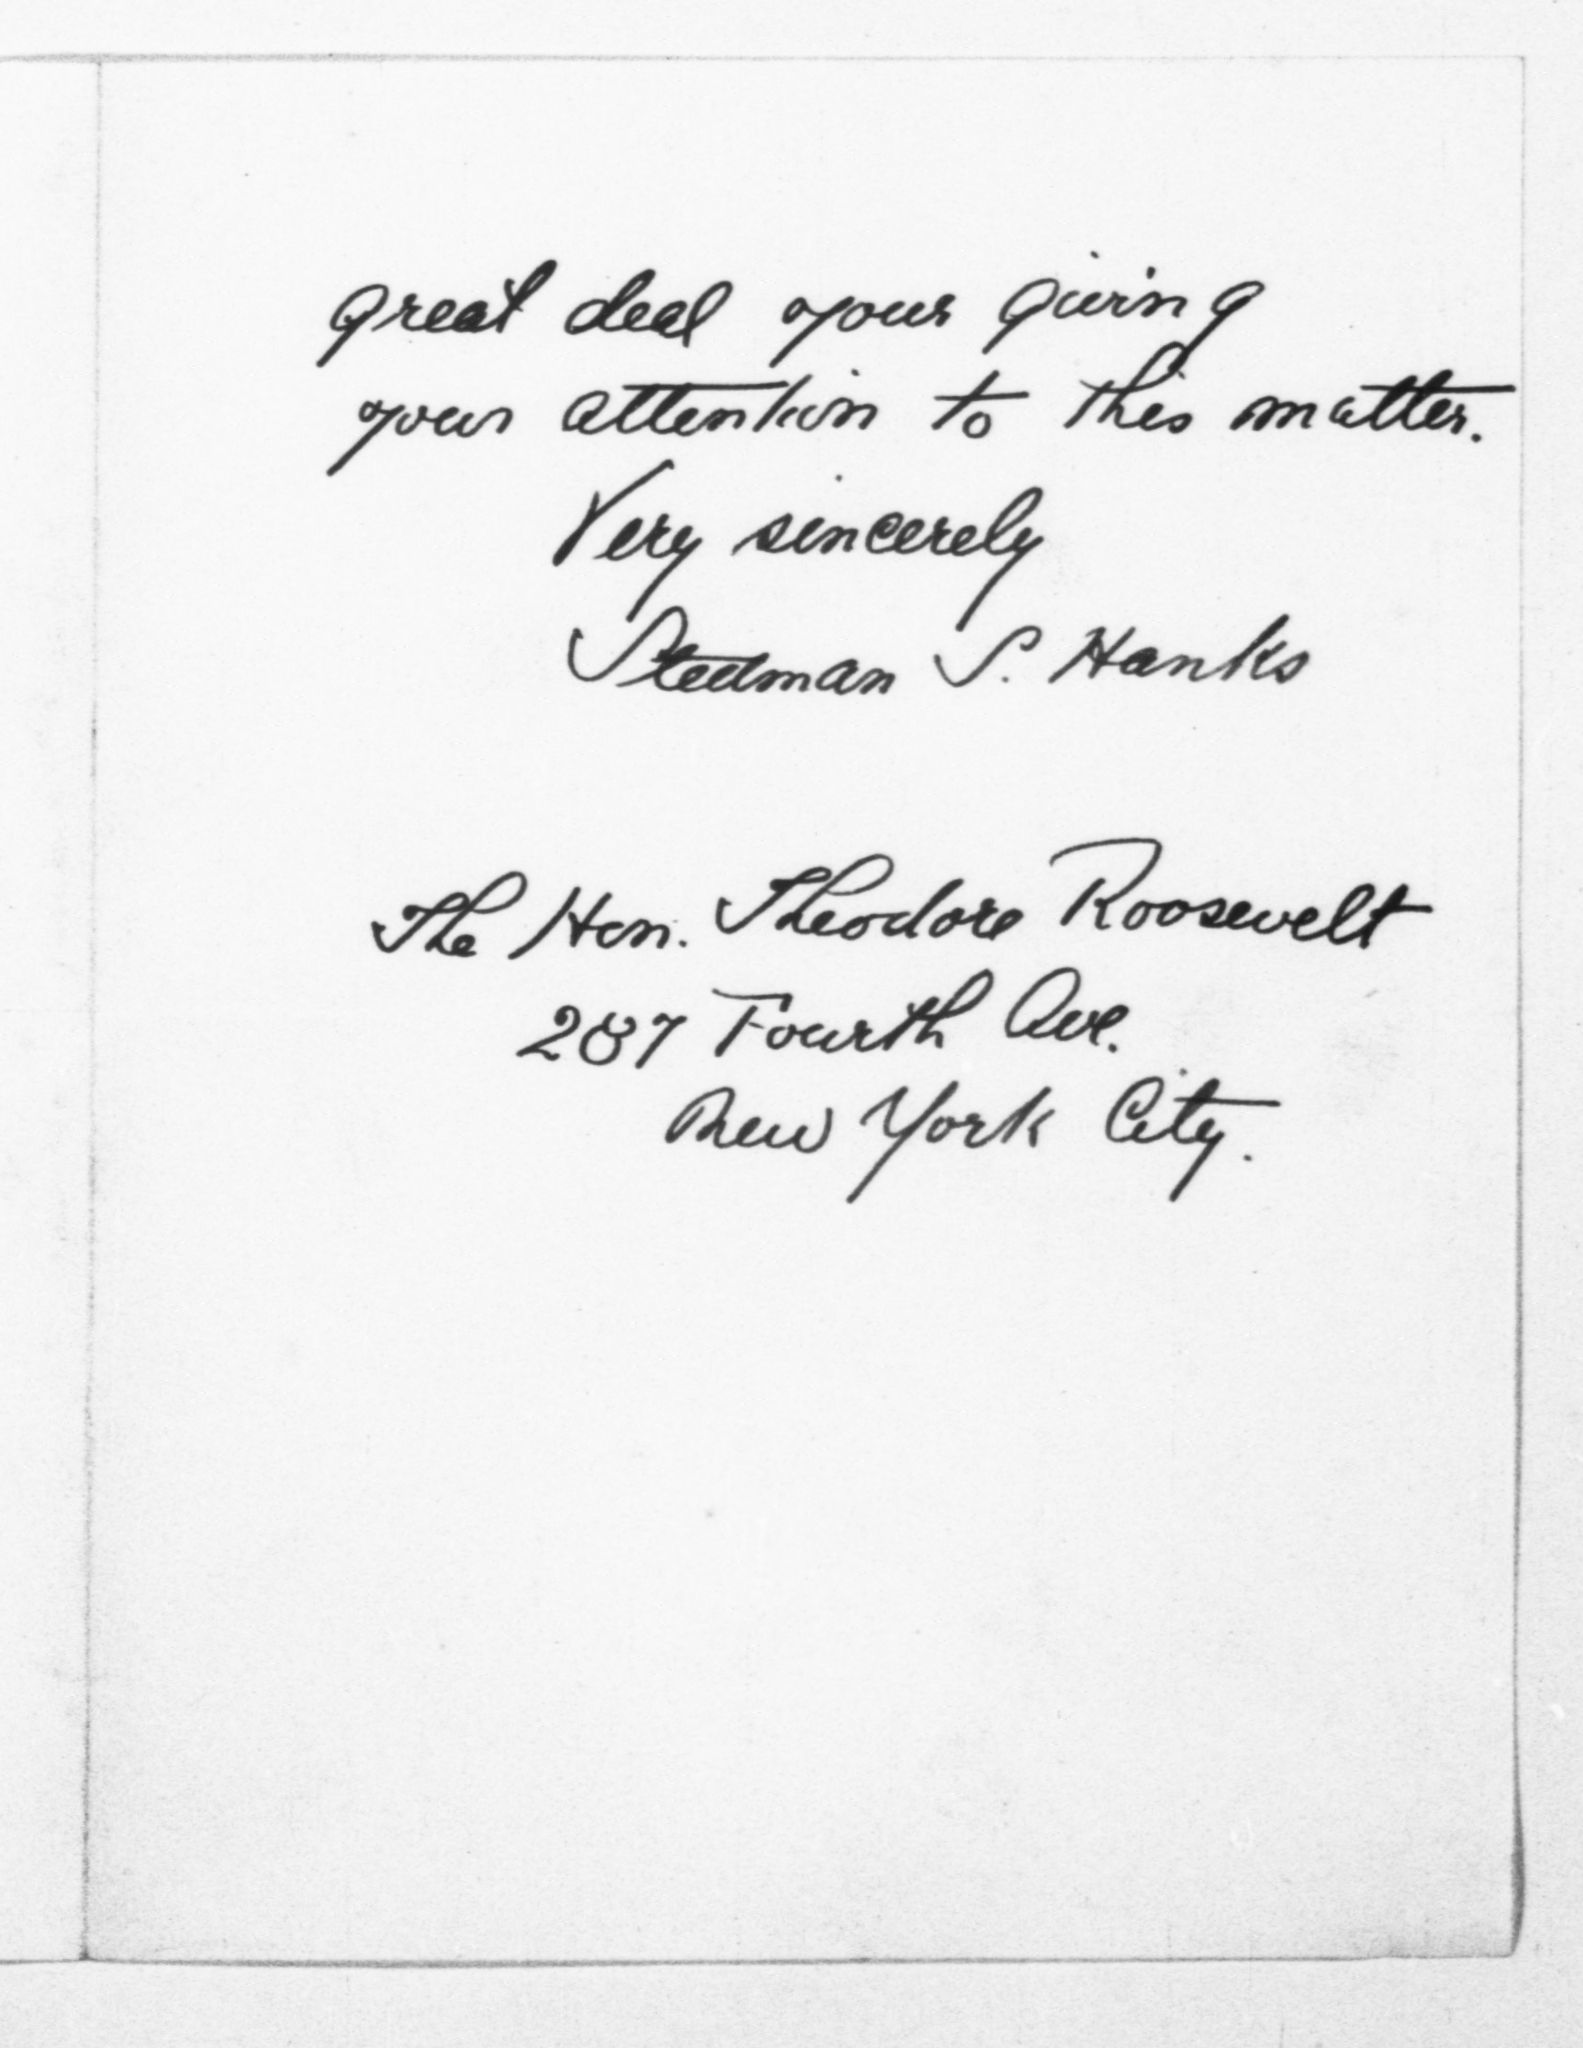 great deal your giving
your attention to this matter.
Very sincerely
Stedman S. Hanks
The Hon. Theodore Roosevelt
287 Fourth Ave.
New York City.